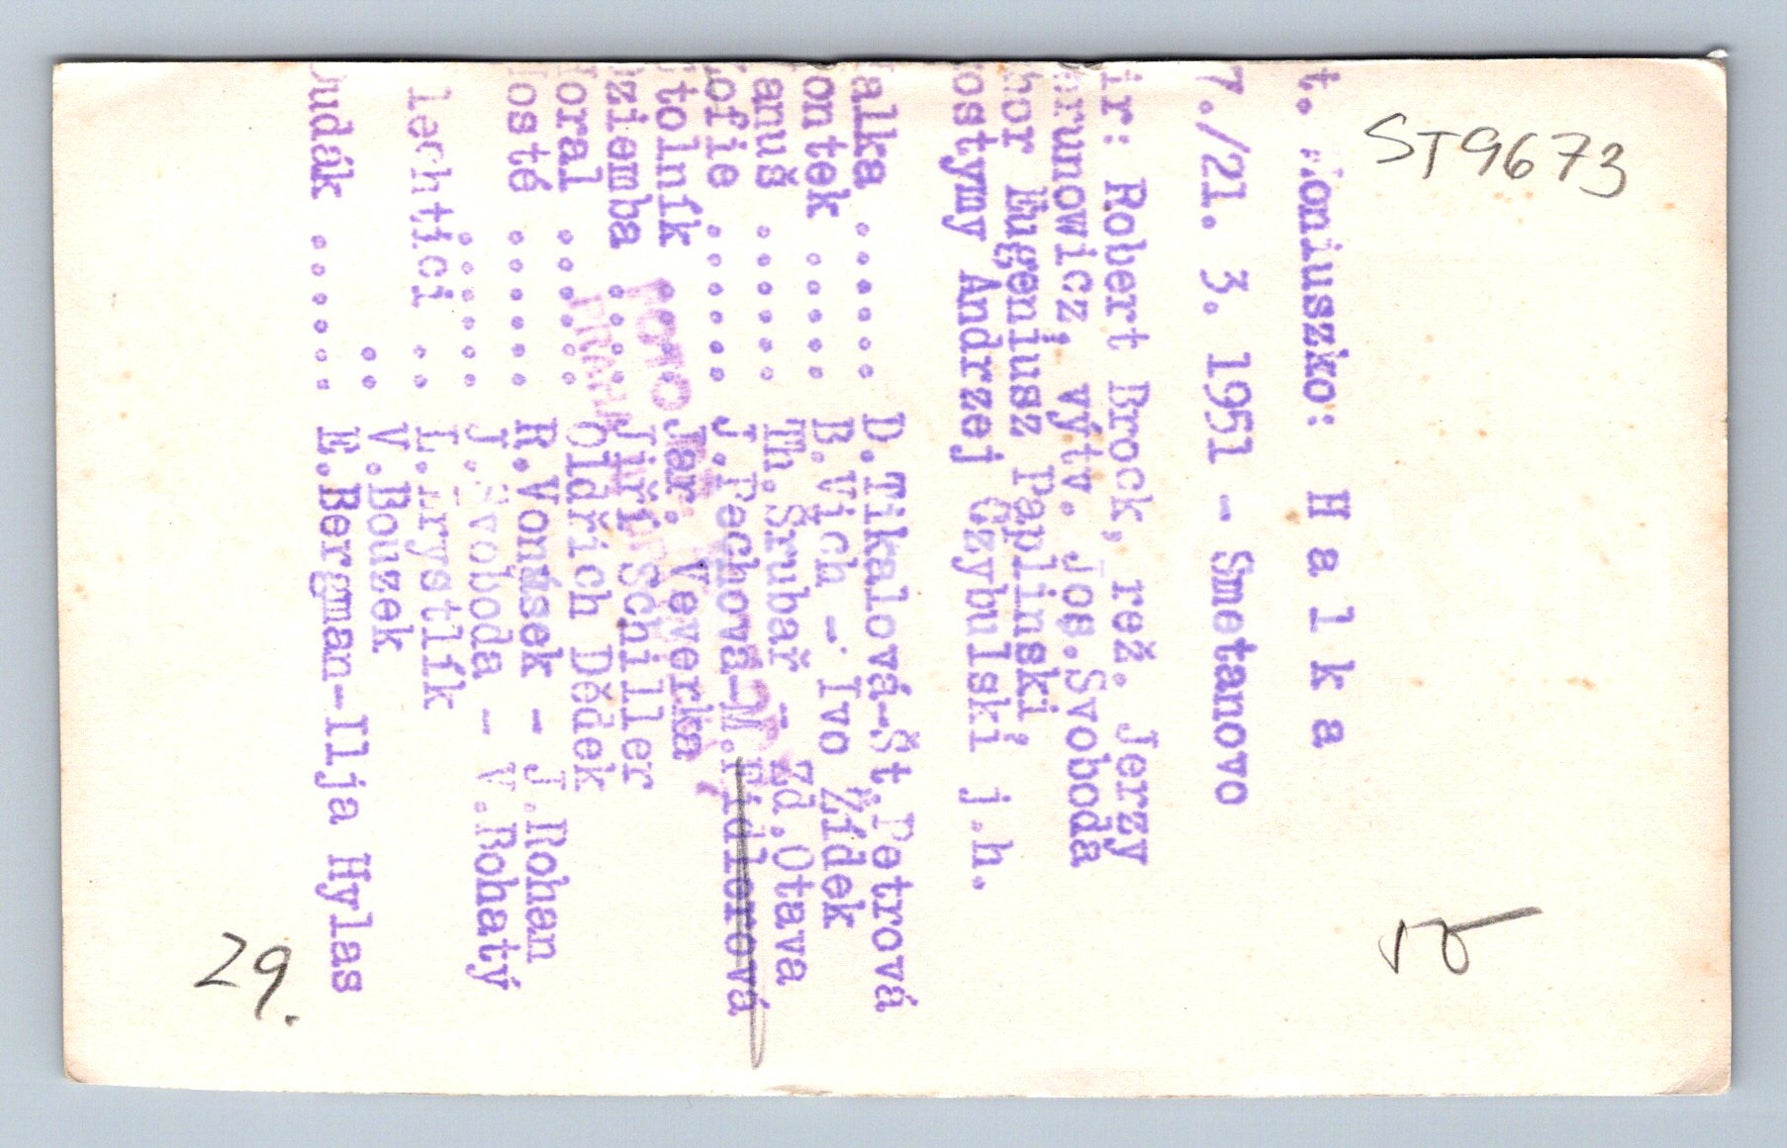 t. Moniuszko: H a l k a
7./21. 3. 1951 - Smetanovo
ir: Robert Brock, rež. Jerzy
runowicz, výtv. Jos.Svoboda
hor Eugeniusz Paplinski,
ostymy Andrzej Czybulski j.h.
alka ...... D.Tikalová-Št.Petrová
ontek ..... B.Vich - Ivo Žídek
anuš ...... Th.Šrubař - Zd.Otava
ofie ...... J.Pechová-M.Fidlerová
tolník .... Jar. Veverka
dziemba .... Jiří Schiller
oral ...... Oldřich Dědek
osté ...... R.Vonásek - J.Rohan
...... J.Svoboda - V.Rohatý
lechtici .. L.Krystlík
.. V.Bouzek
udák ...... E.Bergman-Ilja Hylas
FOTO
ST9673
29.